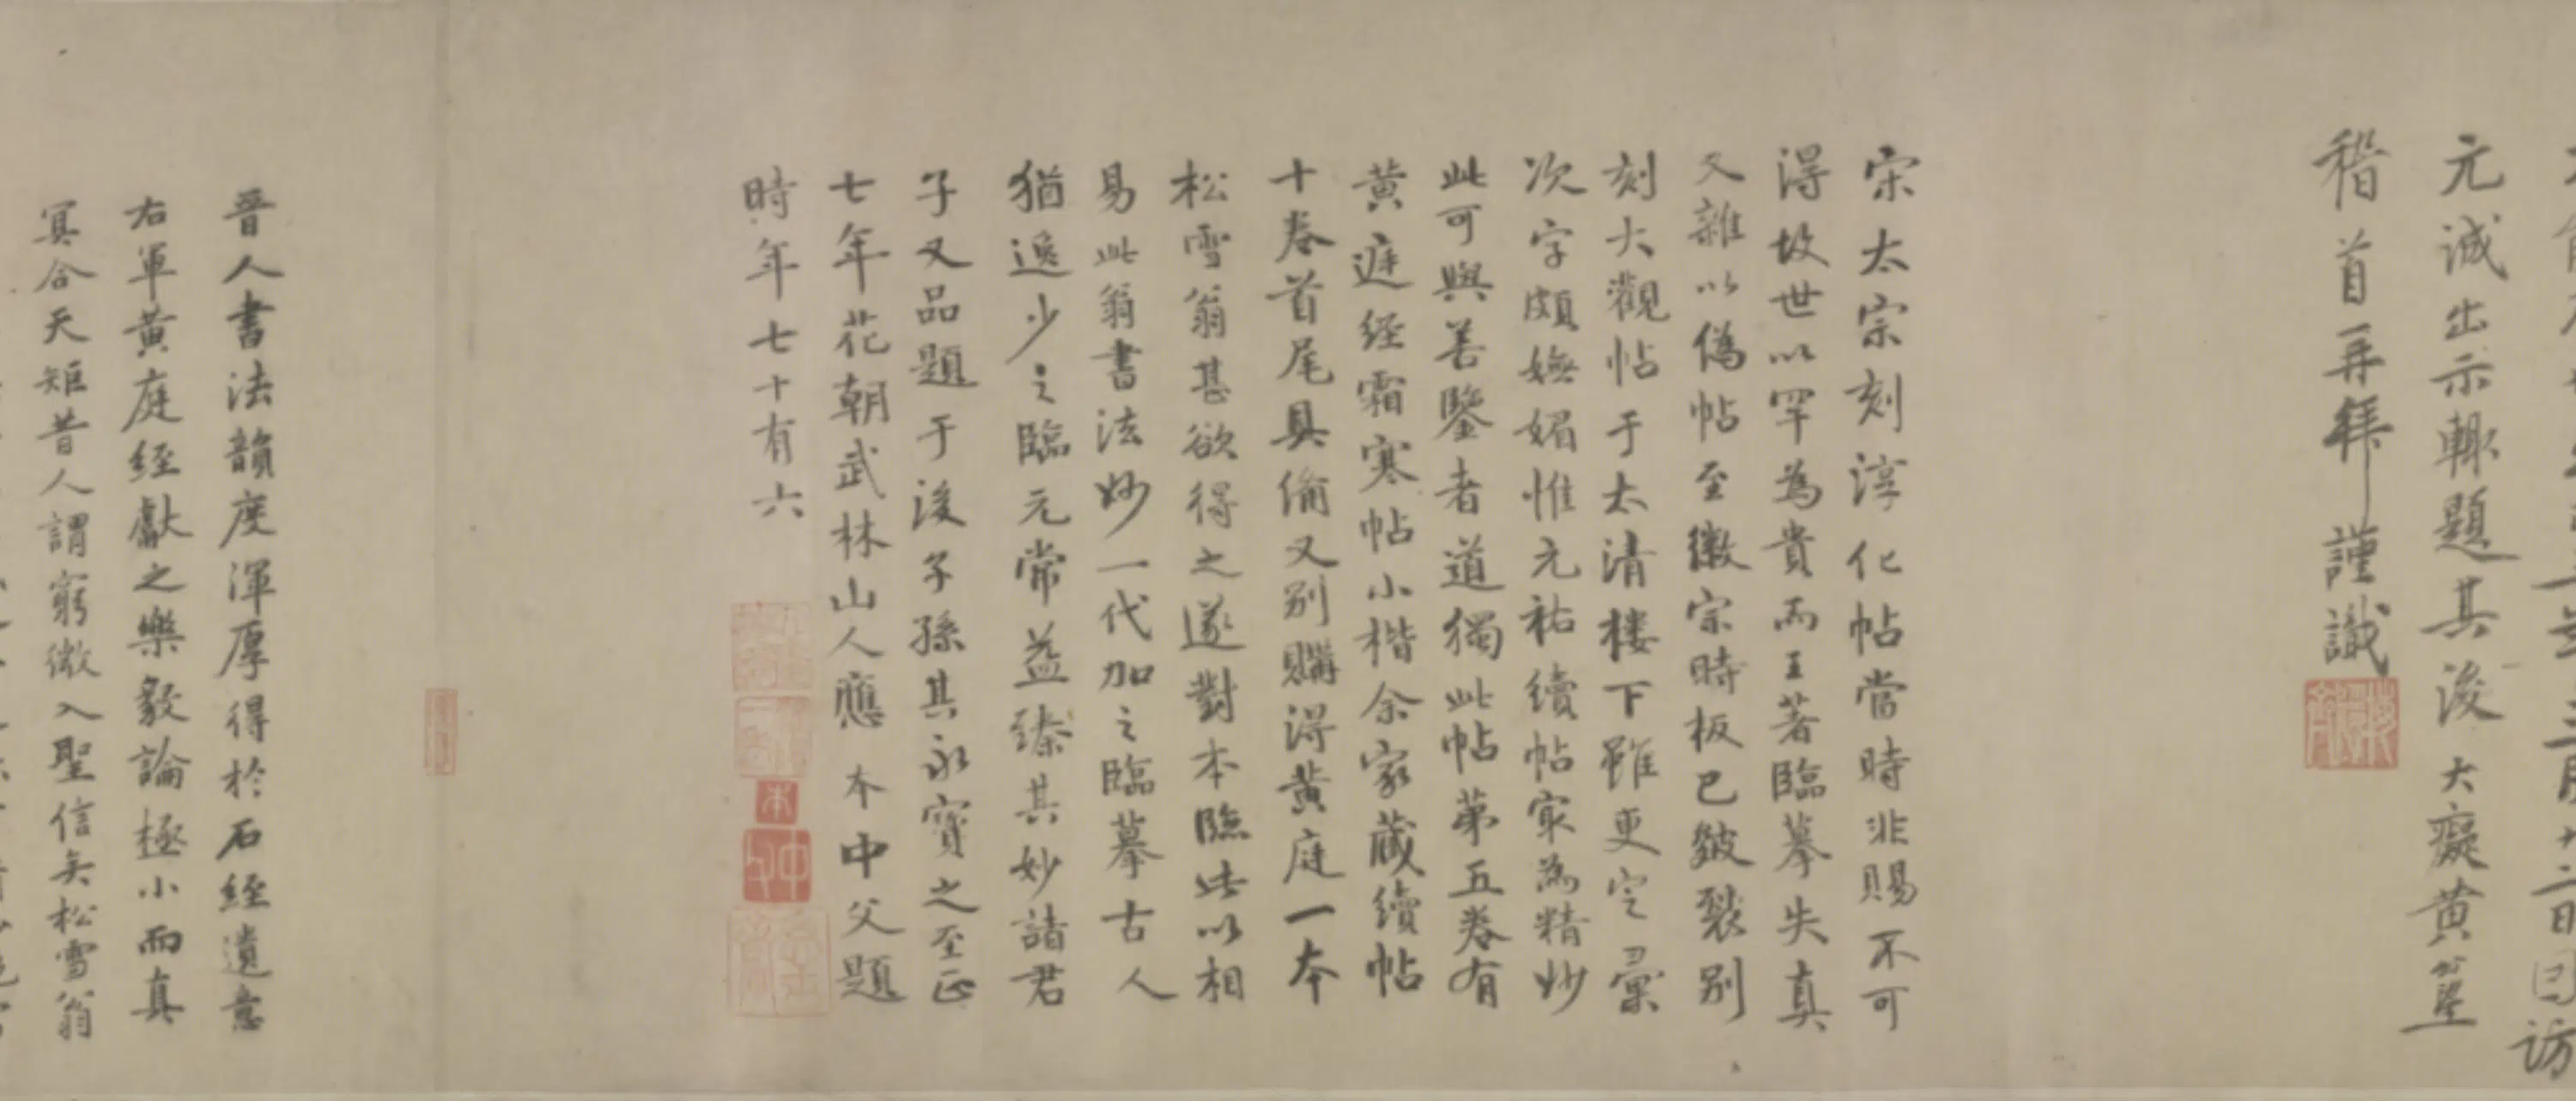 元誠出示輙題其後大癡黄公望
稽首再拜謹識
宋太宗刻淳化帖當時非賜不可
得故世以罕為貴而王著臨摹失真
又雜以偽帖至徽宗時板已皴裂別
刻大觀帖于太清樓下雖更定彙
次字頗嫵媚惟元祐續帖㝡為精妙
此可與善鑒者道獨此帖第五卷有
黄庭經霜寒帖小楷余家蔵續帖
十卷首尾具備又别購得黄庭一本
松雪翁甚欲得之遂對本臨此以相
易此翁書法妙一代加之臨摹古人
猶逸少之臨元常益臻其妙諸君
子又品題于後子孫其永寶之至正
七年花朝武林山人應本中父題
時年七十有六
本
中父
晉人書法韻度渾厚得於石經遺意
右軍黄庭經獻之樂毅論極小而真
冥合天矩昔人謂窮微入聖信矣松雪翁